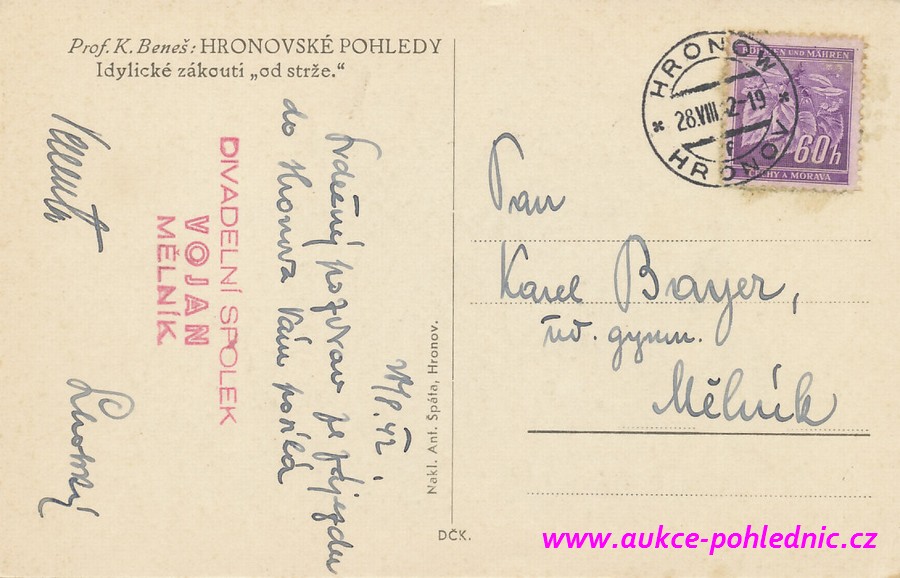 Prof. K. Beneš: HRONOVSKÉ POHLEDY
Idylické zákoutí „od strže.“
28/8.42.
Srdečný pozdrav ze zájezdu
do Hronova Vám posílá
DIVADELNÍ SPOLEK
VOJAN
MĚLNÍK
Nakl. Ant. Špáta, Hronov.
DČK.
HRONOW
28.VIII. 2-19
HRONOV
BÖHMEN UND MÄHREN
60h
ČECHY A MORAVA
Pan
Karel Bayer,
řed. gymn.
Mělník
www.aukce-pohlednic.cz